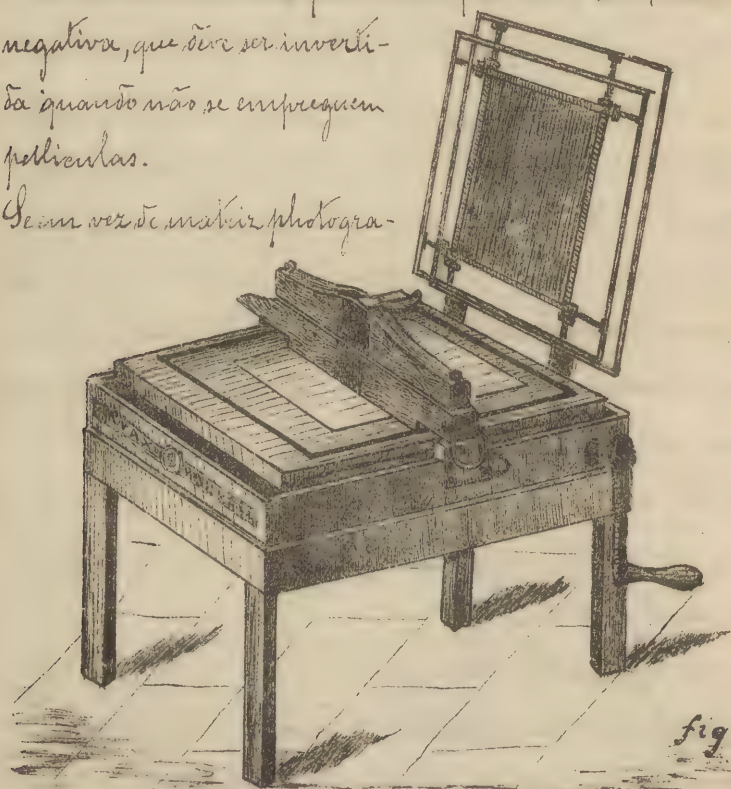 negativa, que déve ser inverti-
da quando não se empreguem
pelliculas.
Se em vez de matriz photogra-
fig